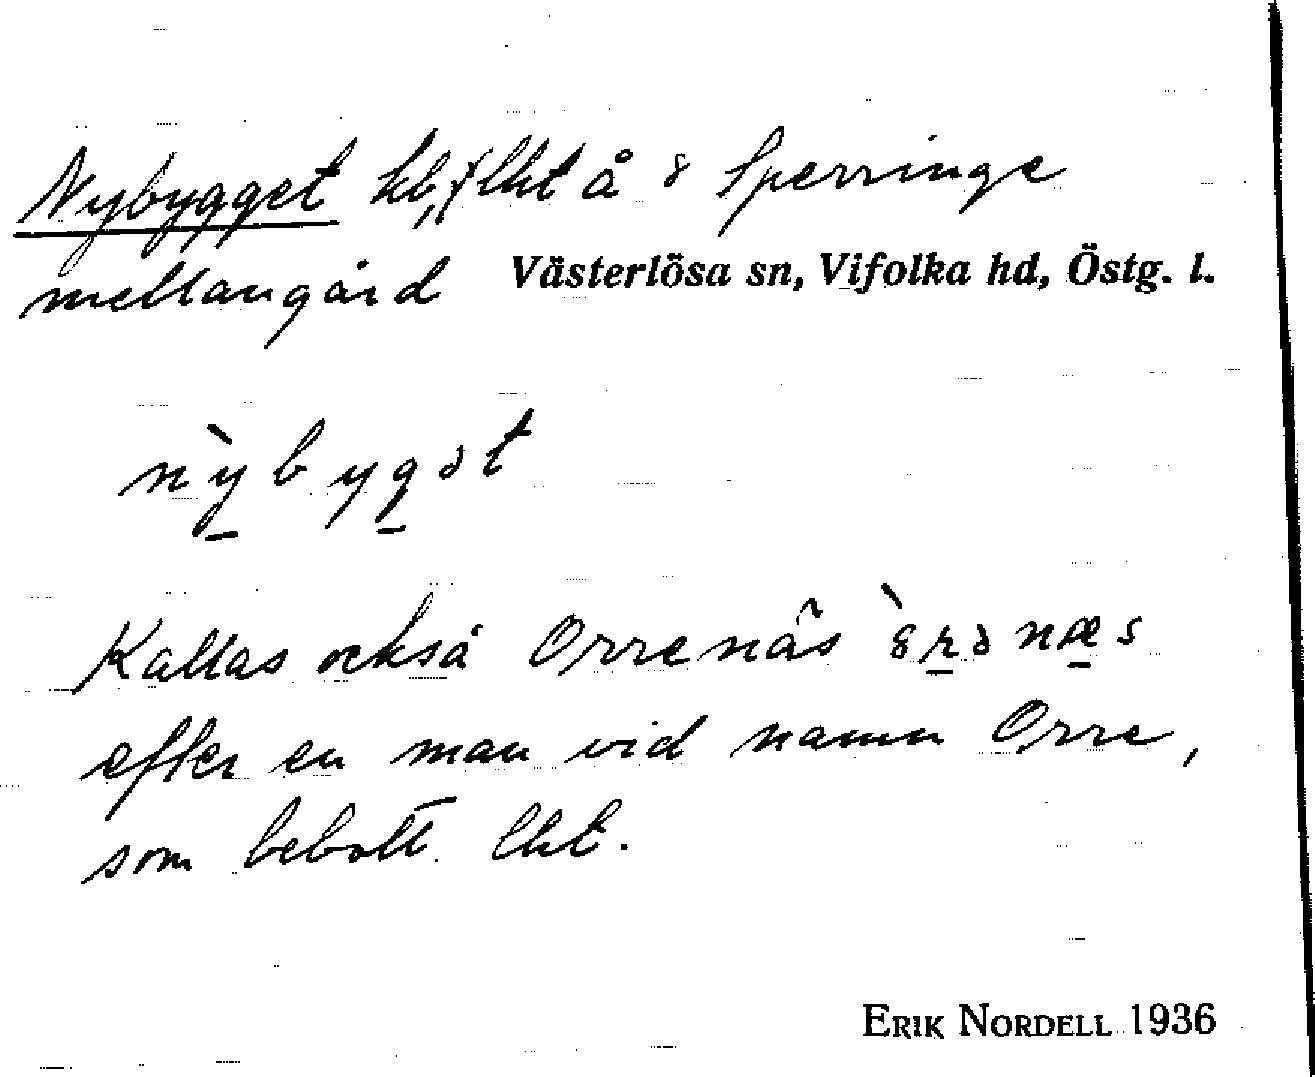 Nybygget hl, f lht å 8 Sperringe
mellangård Västerlösa sn, Vifolka hd, Östg. l.
nỳbygət
Kallas också Orrenäs 8̀rənæs
efter en man vid namn Orre,
som bebott lht.
ERIK NORDELL 1936